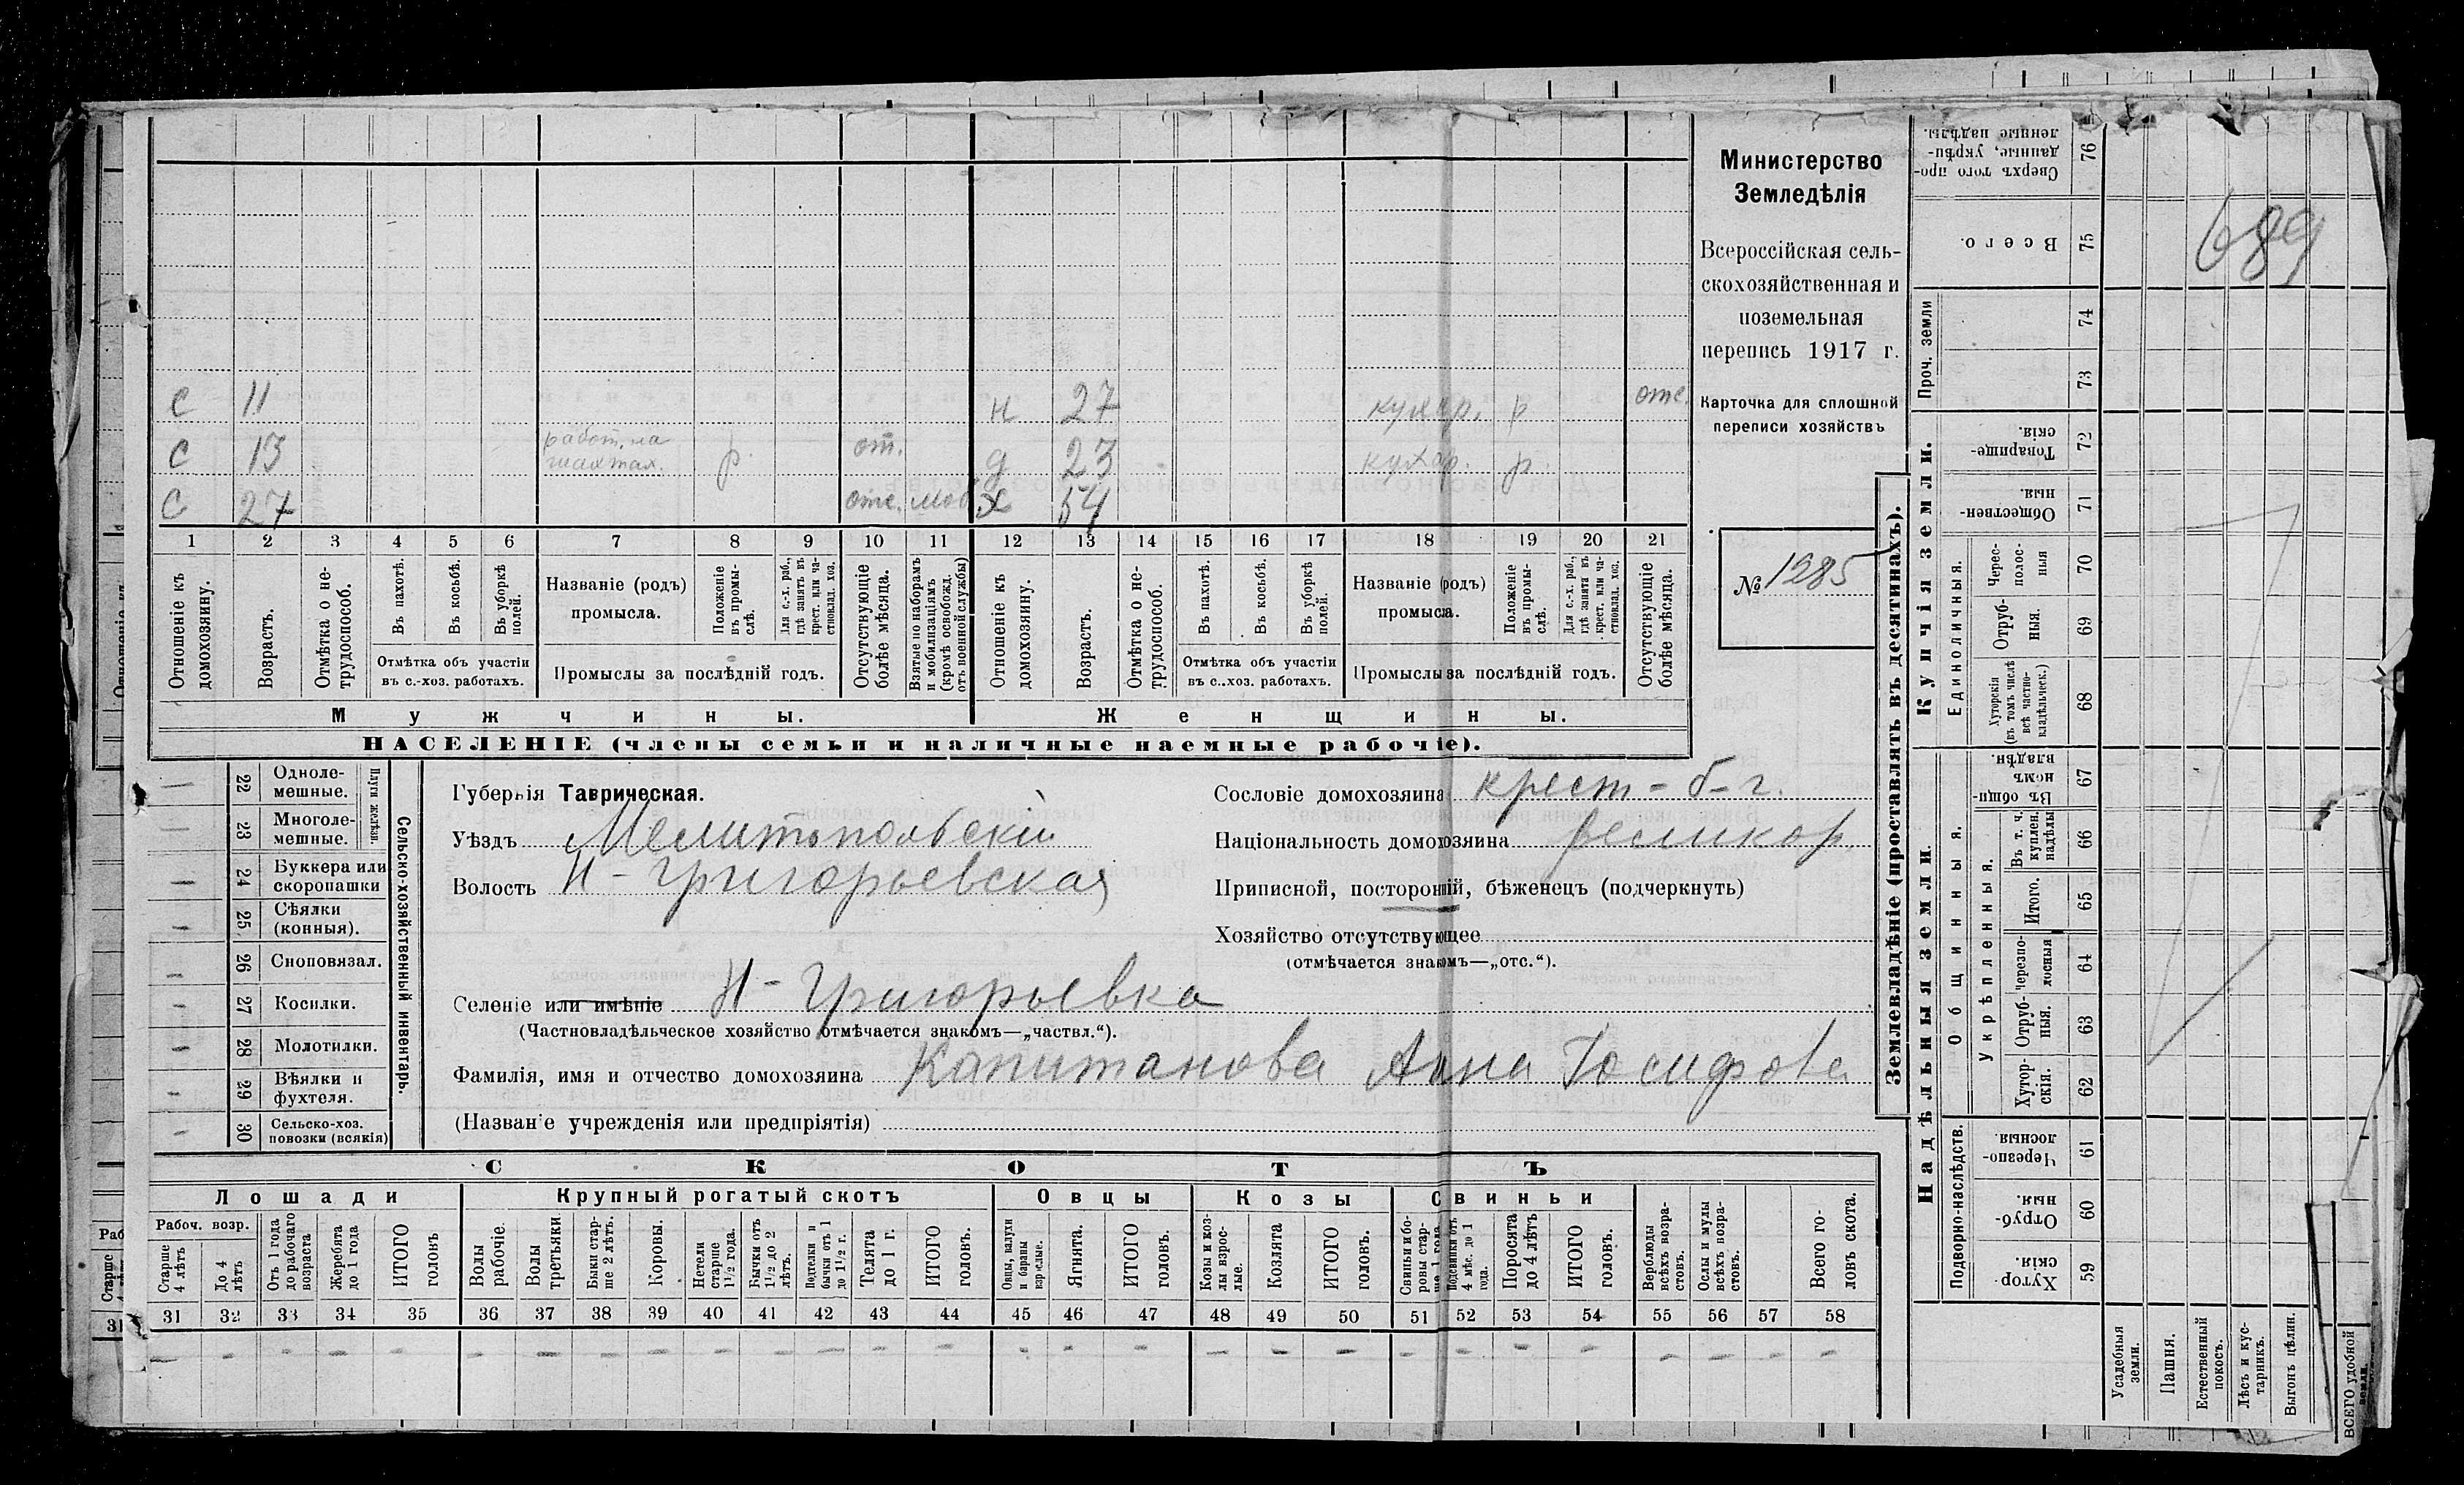 Министерство
Земледѣлія
Всероссійская сель-
скохозяйственная и
поземельная
перепись 1917 г.
Карточка для сплошной
переписи хозяйствъ
№ 1285
689
с 11 н 27 кухар. р отс.
с 13 работ. на шахтах. р. от. д 23 кухар. р.
с 27 отс. моб. х 54
1 2 3 4 5 6 7 8 9 10 11 12 13 14 15 16 17 18 19 20 21
Отношеніе къ домохозяину.
Возрастъ.
Отмѣтка о не-трудоспособ.
Въ пахотѣ.
Въ косьбѣ.
Въ уборкѣ полей.
Отмѣтка объ участіи
въ с.-хоз. работахъ.
Названіе (родъ)
промысла.
Положеніе въ промы-слѣ.
Для с.-х. раб., гдѣ занятъ въ крест. или ча-стновлад. хоз.
Промыслы за послѣдній годъ.
Отсутствующіе болѣе мѣсяца.
Взятые по наборамъ и мобилизаціямъ (кромѣ освобожд. отъ военной службы)
Отношеніе къ домохозяину.
Возрастъ.
Отмѣтка о не-трудоспособ.
Въ пахотѣ.
Въ косьбѣ.
Въ уборкѣ полей.
Отмѣтка объ участіи
въ с..хоз. работахъ.
Названіе (родъ)
промысла.
Положеніе въ промы-слѣ.
Для с.-х. раб., гдѣ занята въ крест. или ча-стновлад. хоз.
Промыслы за послѣдній годъ.
Отсутствующіе болѣе мѣсяца.
Мужчины. Женщины.
НАСЕЛЕНІЕ (члены семьи и наличные наемные рабочіе).
Сельско-хозяйственный инвентарь.
Плуги желѣзн.
22 Одноле-мешные. —
23 Многоле-мешные. —
24 Буккера или скоропашки —
25 Сѣялки (конныя). —
26 Сноповязал. —
27 Косилки. —
28 Молотилки. —
29 Вѣялки и фухтеля. —
30 Сельско-хоз. повозки (всякія) —
Губернія Таврическая.
Уѣздъ Мелитопольскій
Волость Н-Григорьевская
Селеніе или имѣніе Н-Григорьевка
(Частновладѣльческое хозяйство отмѣчается знакомъ—„частвл.“).
Фамилія, имя и отчество домохозяина Капитанова Анна Іосифова
(Названіе учрежденія или предпріятія)
Сословіе домохозяина крест-б-г.
Національность домохозяина великор.
Приписной, посторонній, бѣженецъ (подчеркнуть)
Хозяйство отсутствующее
(отмѣчается знакомъ—„отс.“).
СКОТЪ
Лошади Крупный рогатый скотъ Овцы Козы Свиньи
Рабоч. возр.
Старше 4 лѣтъ
До 4 лѣтъ
Отъ 1 года до рабочаго возраста
Жеребята до 1 года
ИТОГО головъ
Волы рабочіе.
Волы третьяки
Быки стар-ше 2 лѣтъ.
Коровы.
Нетели старше 1½ года.
Бычки отъ 1½ до 2 лѣтъ.
Подтелки и бычки отъ 1 до 1½ г.
Телята до 1 г.
ИТОГО головъ.
Овцы, валухи и бараны взрослые.
Ягнята.
ИТОГО головъ.
Козы и коз-лы взрос-лые.
Козлята
ИТОГО головъ.
Свиньи и бо-ровы стар-ше 1 года
Подсвинки отъ 4 мѣс. до 1 года.
Поросята до 4 лѣтъ
ИТОГО головъ.
Верблюды всѣхъ возра-стовъ.
Ослы и мулы всѣхъ возра-стовъ.
Всего го-ловъ скота.
31 32 33 34 35 36 37 38 39 40 41 42 43 44 45 46 47 48 49 50 51 52 53 54 55 56 57 58
— — — — — — — — — — — — — — — — — — — — — — — — — — — —
Землевладѣніе (проставлять въ десятинахъ).
Купчія земли.
Надѣльныя земли.
Проч. земли
Единоличныя.
Общинныя.
Укрѣпленныя.
Подворно-наслѣдств.
76 Сверхъ того про-данные, укрѣп-ленные надѣлы.
75 Всего.
74
73
72 Товарище-скія.
71 Обществен-ныя.
70 Черес-полос-ныя
69 Отруб-ныя.
68 Хуторскія (въ томъ числѣ всѣ частно-владѣльческ.)
67 Въ общи-номъ владѣн.
66 Въ т. ч. куплен. надѣлы
65 Итого.
64 Черезпо-лосныя
63 Отруб-ныя.
62 Хутор-скія.
61 Черезпо-лосныя.
60 Отруб-ныя.
59 Хутор-скія.
Усадебныя земли.
Пашня.
Естественный покосъ.
Лѣсъ и кус-тарникъ.
Выгонъ цѣлин.
ВСЕГО удобной земли.